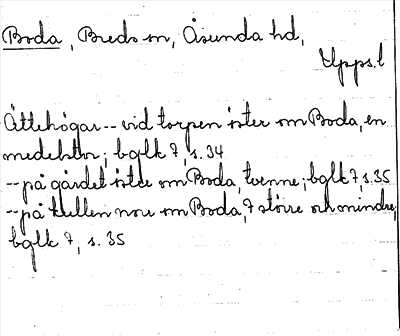 Boda, Breds sn, Åsunda hd,
Upps. l
Ättehögar -- vid torpen öster om Boda, en
medelstor; bglk 7, s. 34
-- på gärdet öster om Boda, tvenne; bglk 7, s. 35
-- på kullen norr om Boda, 7 större och mindre,
bglk 7, s. 35